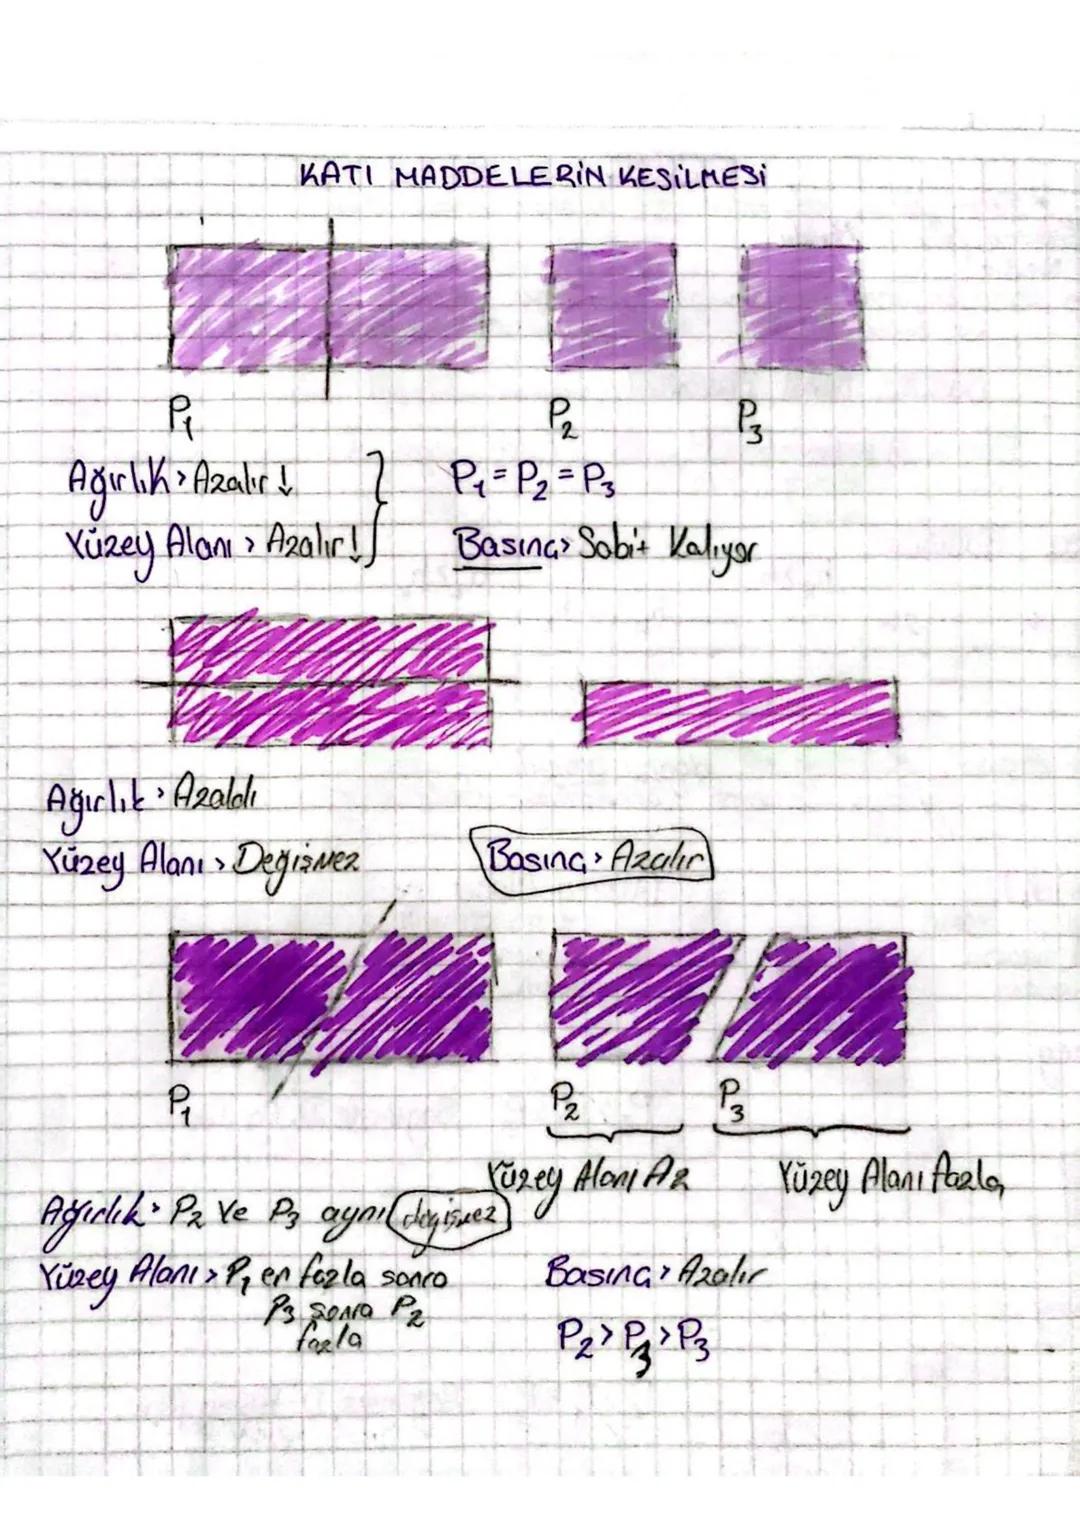 KATI MADDELERİN KESİLMESİ
P₁ P₂ P₃
Ağırlık > Azalır ↓
Yüzey Alanı > Azalır ↓
P₁ = P₂ = P₃
Basınç > Sabit Kalıyor
Ağırlık > Azaldı
Yüzey Alanı > Değişmez
Basınç > Azalır
P₁ P₂ P₃
Yüzey Alanı Az
Yüzey Alanı fazla
Ağırlık > P₂ ve P₃ aynı değişmez
Yüzey Alanı > P₁ en fazla sonra
P₃ sonra P₂
fazla
Basınç > Azalır
P₂ > P₃ > P₃